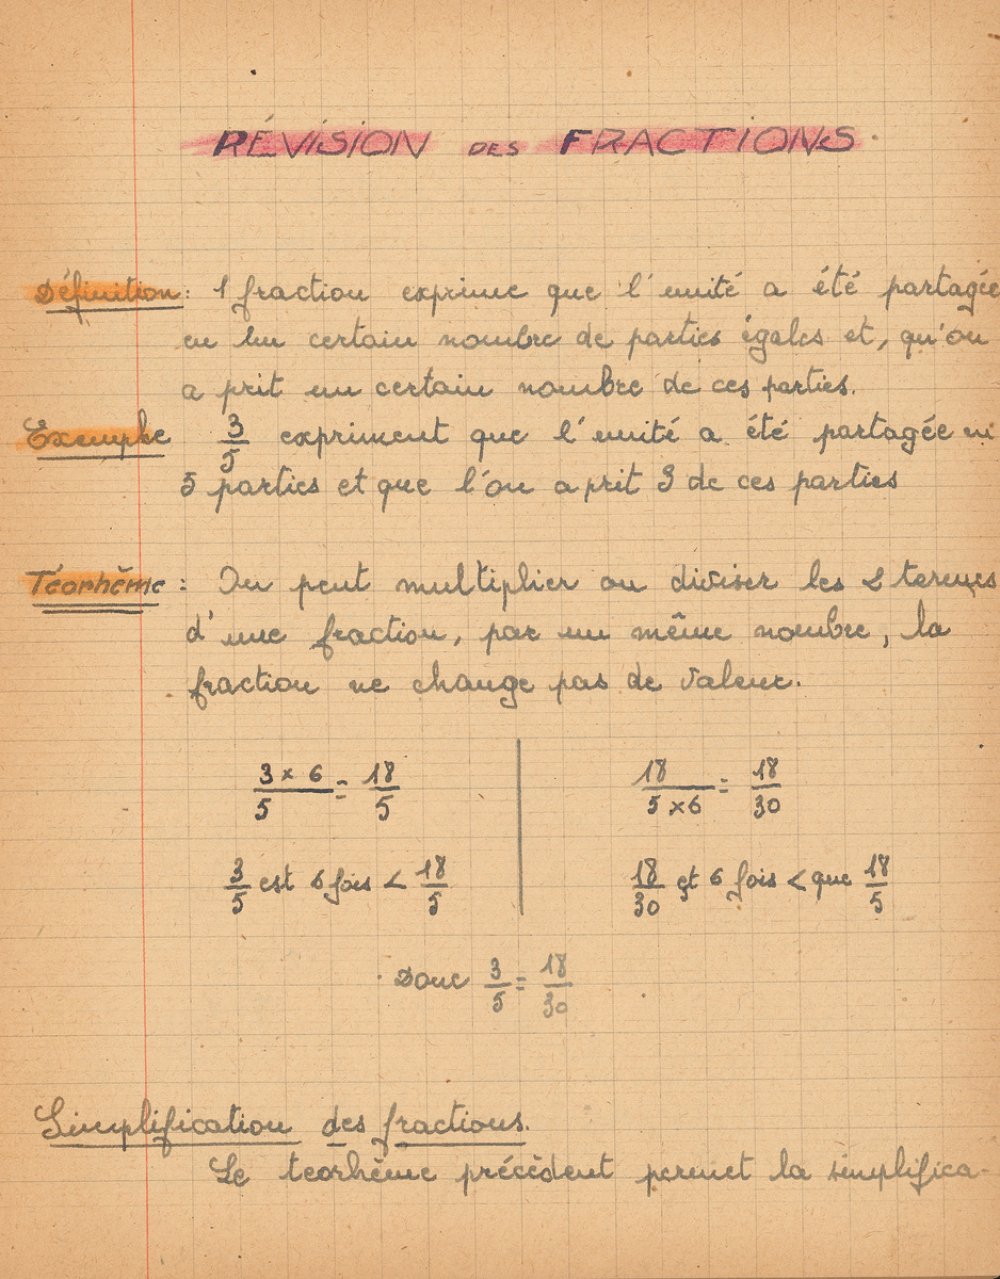 RÉVISION DES FRACTIONS.
Définition: 1 fraction exprime que l'unité a été partagée
en un certain nombre de parties égales et, qu'on
a prit un certain nombre de ces parties.
Exemple 3/5 expriment que l'unité a été partagée en
5 parties et que l'on a prit 3 de ces parties
Téorhème: On peut multiplier ou diviser les 2 termes
d'une fraction, par un même nombre, la
fraction ne change pas de valeur.
3 × 6 / 5 = 18/5
18 / 5 × 6 = 18/30
3/5 est 6 fois < 18/5
18/30 et 6 fois < que 18/5
Donc 3/5 = 18/30
Simplification des fractions.
Le teorhème précèdent permet la simplifica-